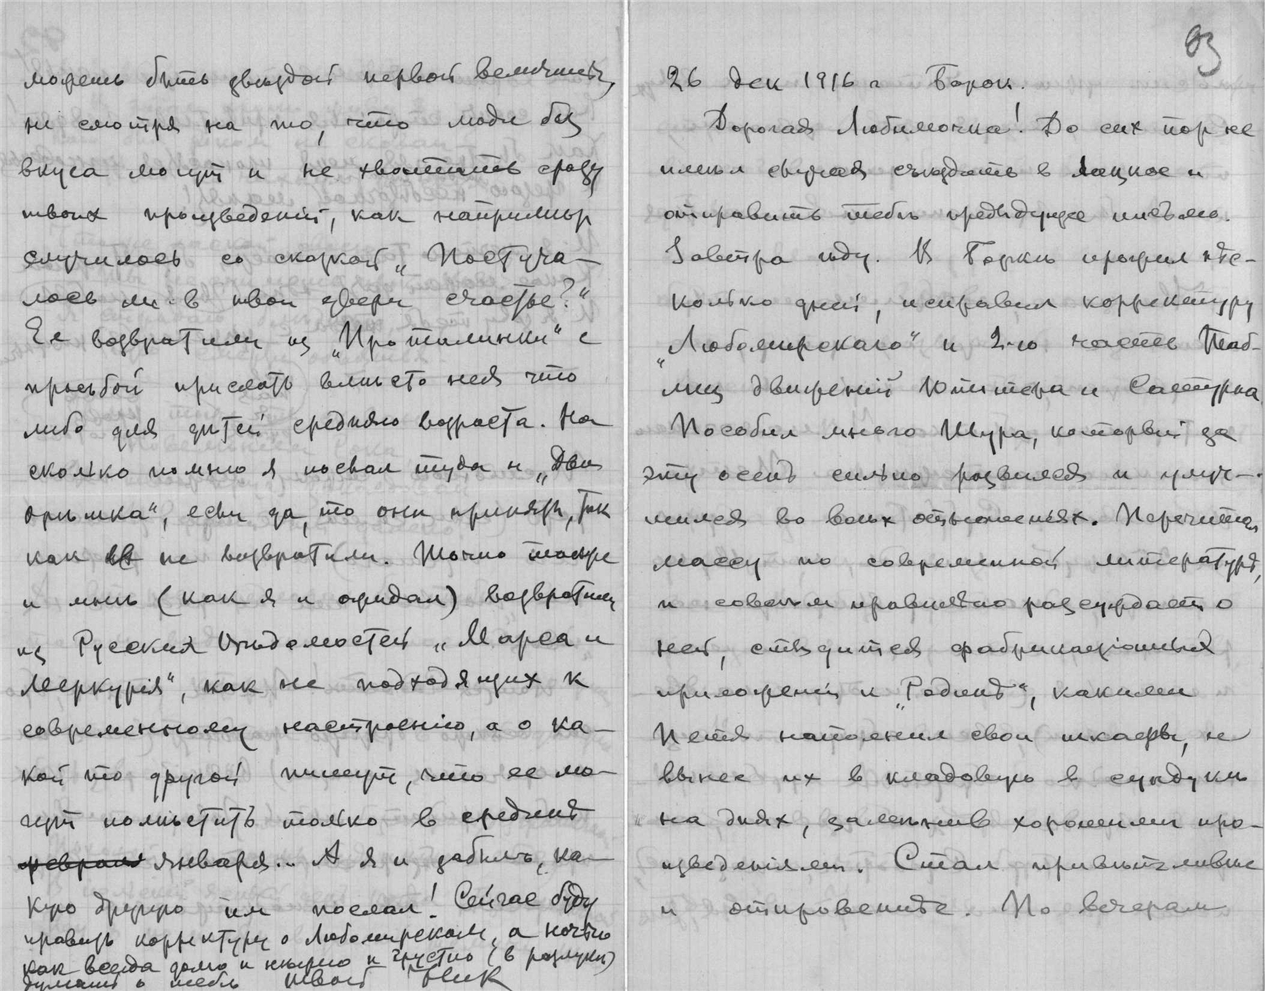 можешь быть звѣздой первой величины,
не смотря на то, что люди без
вкуса могут и не хватить сразу
твоих произведений, как напримѣр
случилось со сказкой „Постуча-
лось ли в твои двери счастье?"
Ее возвратили из „Проталинки" с
просьбой прислать вмѣсто нея что
либо для дѣтей средняго возраста. На
сколько помню я послал туда и „Два
орѣшка", если да, то они приняты, так
как не возвратили. Точно также
и мнѣ (как я и ожидал) возвратили
из Русских Вѣдомостей „Марса и
Меркурія", как не подходящих к
современному настроенію, а о ка-
кой то другой пишут, что ее мо-
гут помѣстить только в средних
февраля января... А я и забылъ, ка-
кую другую им послал! Сейчас буду
править корректуру о Любомирском, а ночью
как всегда долго и нѣжно и грустно (в разлуке)
думать о тебѣ твой Ник
93
26 дек 1916 г Борок.
Дорогая Любимочка! До сих пор не
имѣл случая съѣздить в и
отправить тебѣ предыдущее письмо.
Завтра ѣду. В Боркѣ прожил нѣс-
колько дней, исправил корректуру
„Любомирскаго" и 2-ю часть Таб-
лиц движений Юпитера и Сатурна
Пособил много Шура, который за
эту осень сильно развился и улуч-
шился во всѣх отношеньях. Перечитал
массу по современной литературѣ,
и совсѣм правильно разсуждает о
ней, стыдится фабрикаціонных
приложений к „Родинѣ", какими
Петя наполнил свои шкафы, и
вынес их в кладовую в сундуки
на днях, замѣнив хорошими про-
изведеніями. Стал привѣтливѣе
и откровеннѣе. По вечерам